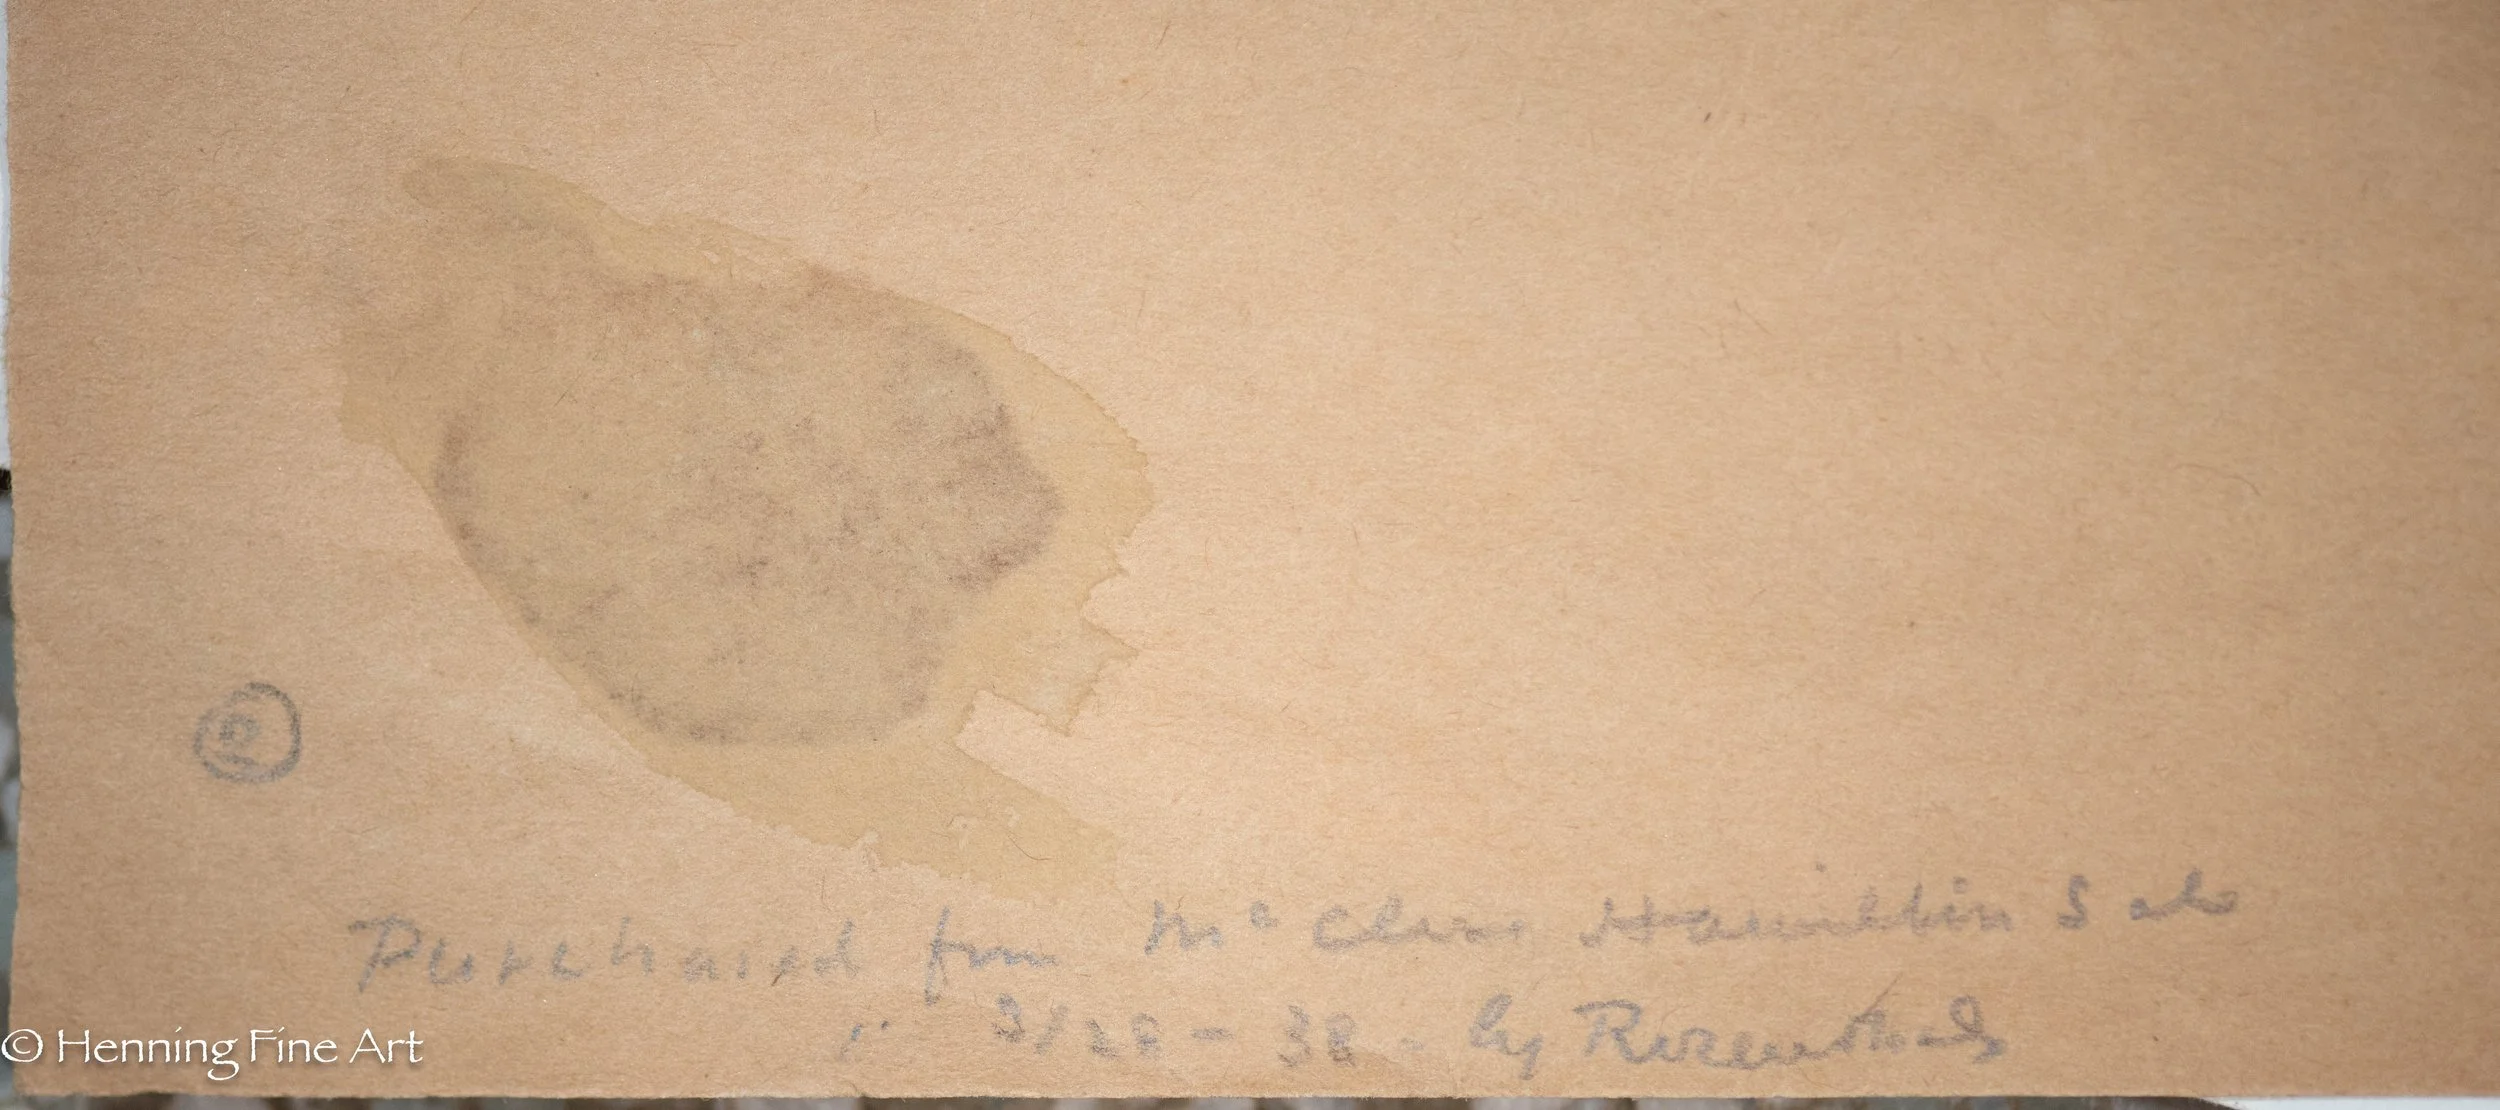 Purchased from Mc Clure Hamilton Sale
" 3/28 - 38 - by
© Henning Fine Art